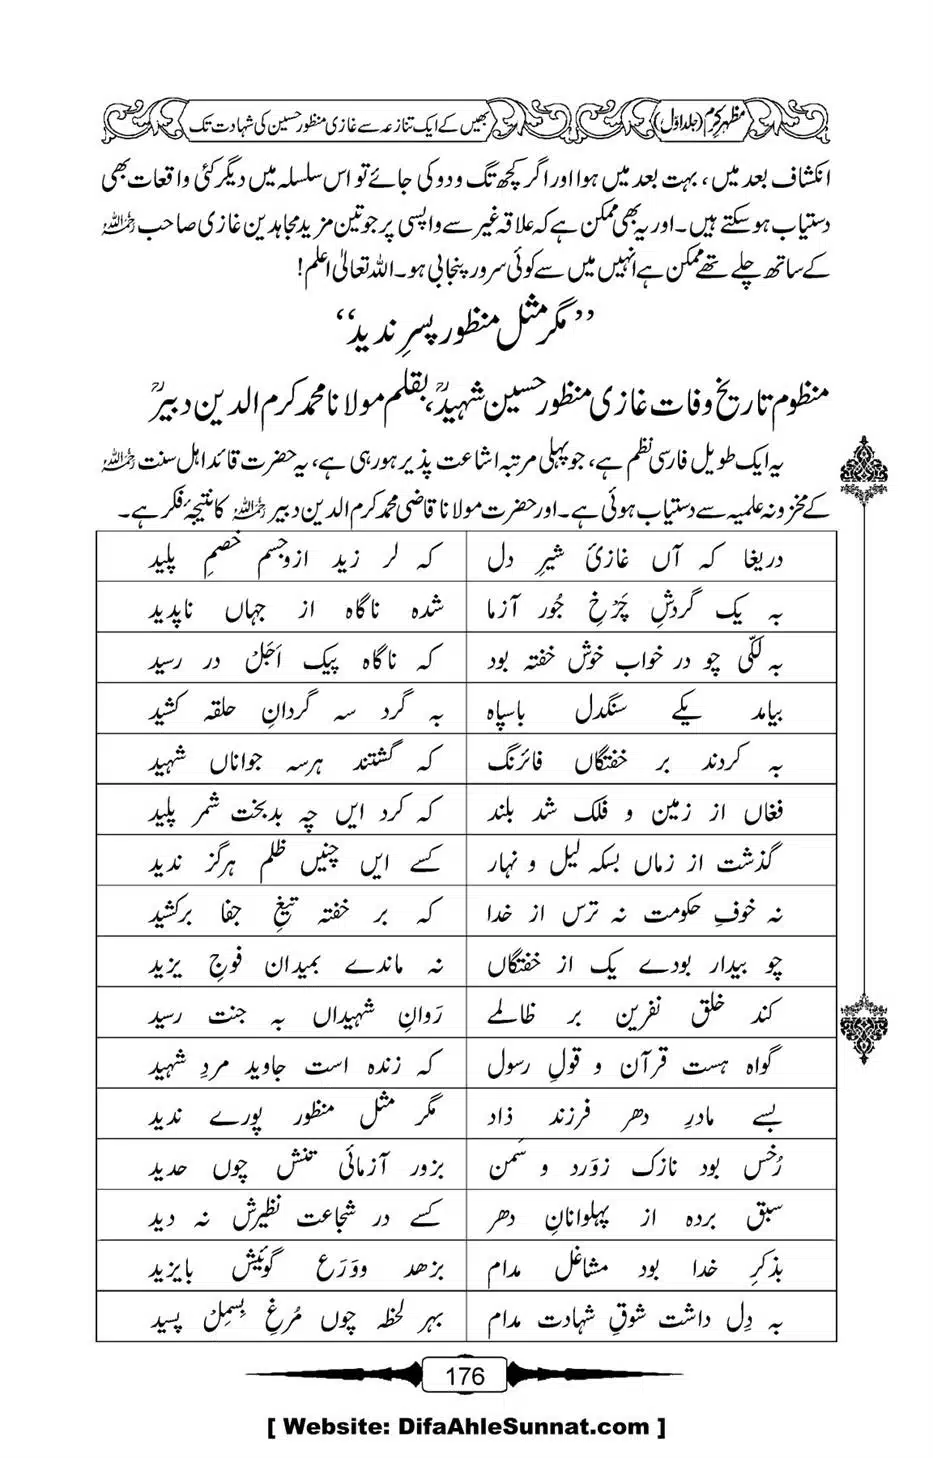 مظہرِکرم (جلد اوّل) بھیں کے ایک تنازعہ سے غازی منظور حسین کی شہادت تک
انکشاف بعد میں، بہت بعد میں ہوا اور اگر کچھ تگ و دو کی جائے تو اس سلسلہ میں دیگر کئی واقعات بھی
دستیاب ہو سکتے ہیں۔ اور یہ بھی ممکن ہے کہ علاقہ غیر سے واپسی پر جو تین مزید مجاہدین غازی صاحب رحمہ اللہ
کے ساتھ چلے تھے ممکن ہے انہیں میں سے کوئی سرور پنجابی ہو۔ اللہ تعالیٰ اعلم!
’’مگر مثل منظور پسرِ ندید‘‘
منظوم تاریخ وفات غازی منظور حسین شہیدؒ، بقلم مولانا محمد کرم الدین دبیرؒ
یہ ایک طویل فارسی نظم ہے، جو پہلی مرتبہ اشاعت پذیر ہو رہی ہے، یہ حضرت قائد اہل سنت رحمہ اللہ
کے مخزونہ علمیہ سے دستیاب ہوئی ہے۔ اور حضرت مولانا قاضی محمد کرم الدین دبیر رحمہ اللہ کا نتیجۂ فکر ہے۔
دریغا کہ آں غازیٔ شیرِ دل کہ لر زید ازو جسم خصمِ پلید
بہ یک گردشِ چَرْخِ جُور آزما شدہ ناگاہ از جہاں ناپدید
بہ لَکّی چو در خواب خوش خفتہ بود کہ ناگاہ پیک اَجَلْ در رسید
بیامد یکے سنگدل باسپاہ بہ گرد سہ گردانِ حلقہ کشید
بہ کردند بر خفتگاں فائرنگ کہ گشتند ہرسہ جواناں شہید
فغاں از زمین و فلک شد بلند کہ کرد ایں چہ بدبخت شمر پلید
گذشت از زماں بسکہ لیل و نہار کسے ایں چنیں ظلم ہرگز ندید
نہ خوفِ حکومت نہ ترس از خدا کہ بر خفتہ تیغِ جفا برکشید
چو بیدار بودے یک از خفتگاں نہ ماندے بمیدان فوجِ یزید
کند خلق نفرین بر ظالمے رَوانِ شہیداں بہ جنت رسید
گواہ ہست قرآن و قولِ رسول کہ زندہ است جاوید مردِ شہید
بسے مادرِ دھر فرزند ذاد مگر مثل منظور پورے ندید
رُخس بود نازک زوَرد و سَمن بزور آزمائی تنش چوں حدید
سبق بردہ از پہلوانانِ دھر کسے در شجاعت نظیرش نہ دید
بذکرِ خدا بود مشاغل مدام بزھد ووَرَع گوئیش بایزید
بہ دِل داشت شوقِ شہادت مدام بہر لحظہ چوں مُرغِ بِسمِلْ پسید
176
[ Website: DifaAhleSunnat.com ]